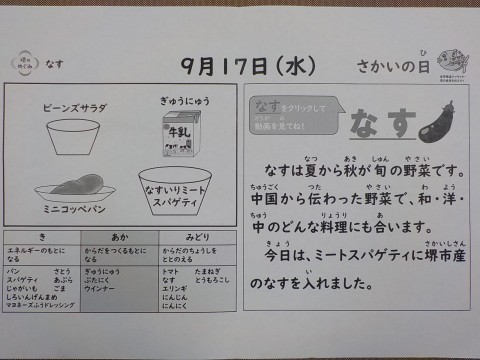 堺の
めぐみ
なす
9月17日(水)
さかいの日
ビーンズサラダ
ぎゅうにゅう
牛乳
ミニコッペパン
なすいりミート
スパゲティ
き
あか
みどり
エネルギーのもとに
なる
からだをつくるもとに
なる
からだのちょうしを
ととのえる
パン さとう
スパゲティ あぶら
じゃがいも ごま
しろいんげんまめ
マヨネーズふうドレッシング
ぎゅうにゅう
ぶたにく
ウインナー
トマト たまねぎ
なす とうもろこし
エリンギ
にんじん
にんにく
なすをクリックして
動画を見てね!
なす
なすは夏から秋が旬の野菜です。
中国から伝わった野菜で、和・洋・
中のどんな料理にも合います。
今日は、ミートスパゲティに堺市産
のなすを入れました。